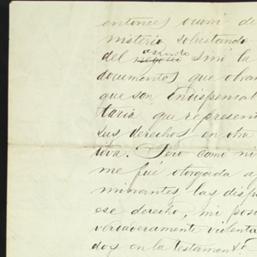 entonces ocurri de
misterio solicitando
del asunto simi la
documentos que obran
que son indispensab
taria que represen
sus derechos en otra
tova. Pero como ni
me fué otorgada a
minantes las disp
ese derecho, mi pos
verdaderamente violenta
dos en la testament.